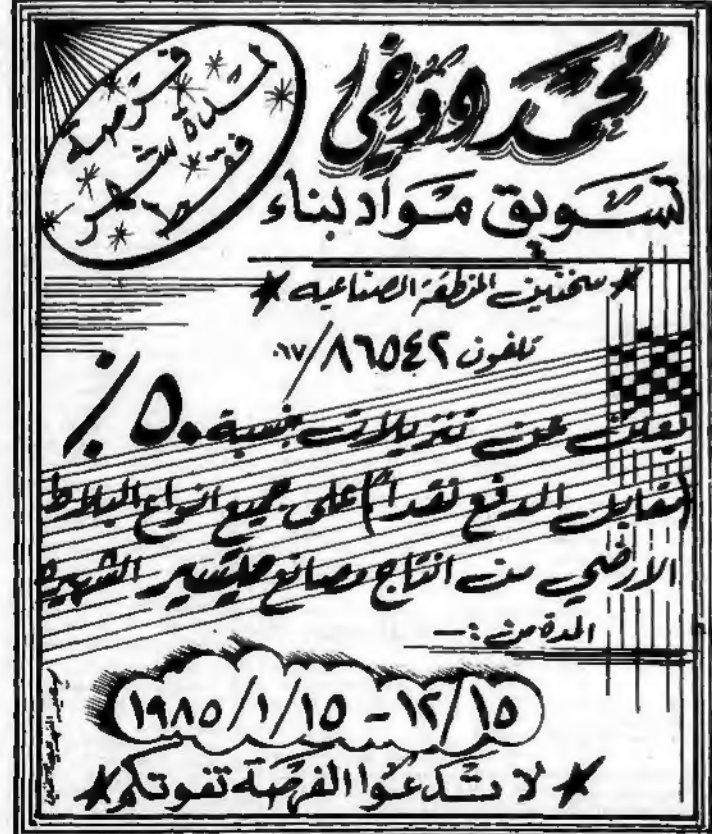 فرصة
لمدة شهر
فقط
محمد وردة
تسويق مواد بناء
* سخنين المنطقة الصناعيه *
تلفون ٨٦٥٤٢/٠٦٧
تعلن عن تنزيلات بنسبة ٥٠٪
(مقابل الدفع نقداً) على جميع انواع البلاط
الارضي من انتاج مصانع الشهيرة
المدة من :—
١٢/١٥ - ١٩٨٥/١/١٥
* لا تدعوا الفرصة تفوتكم *